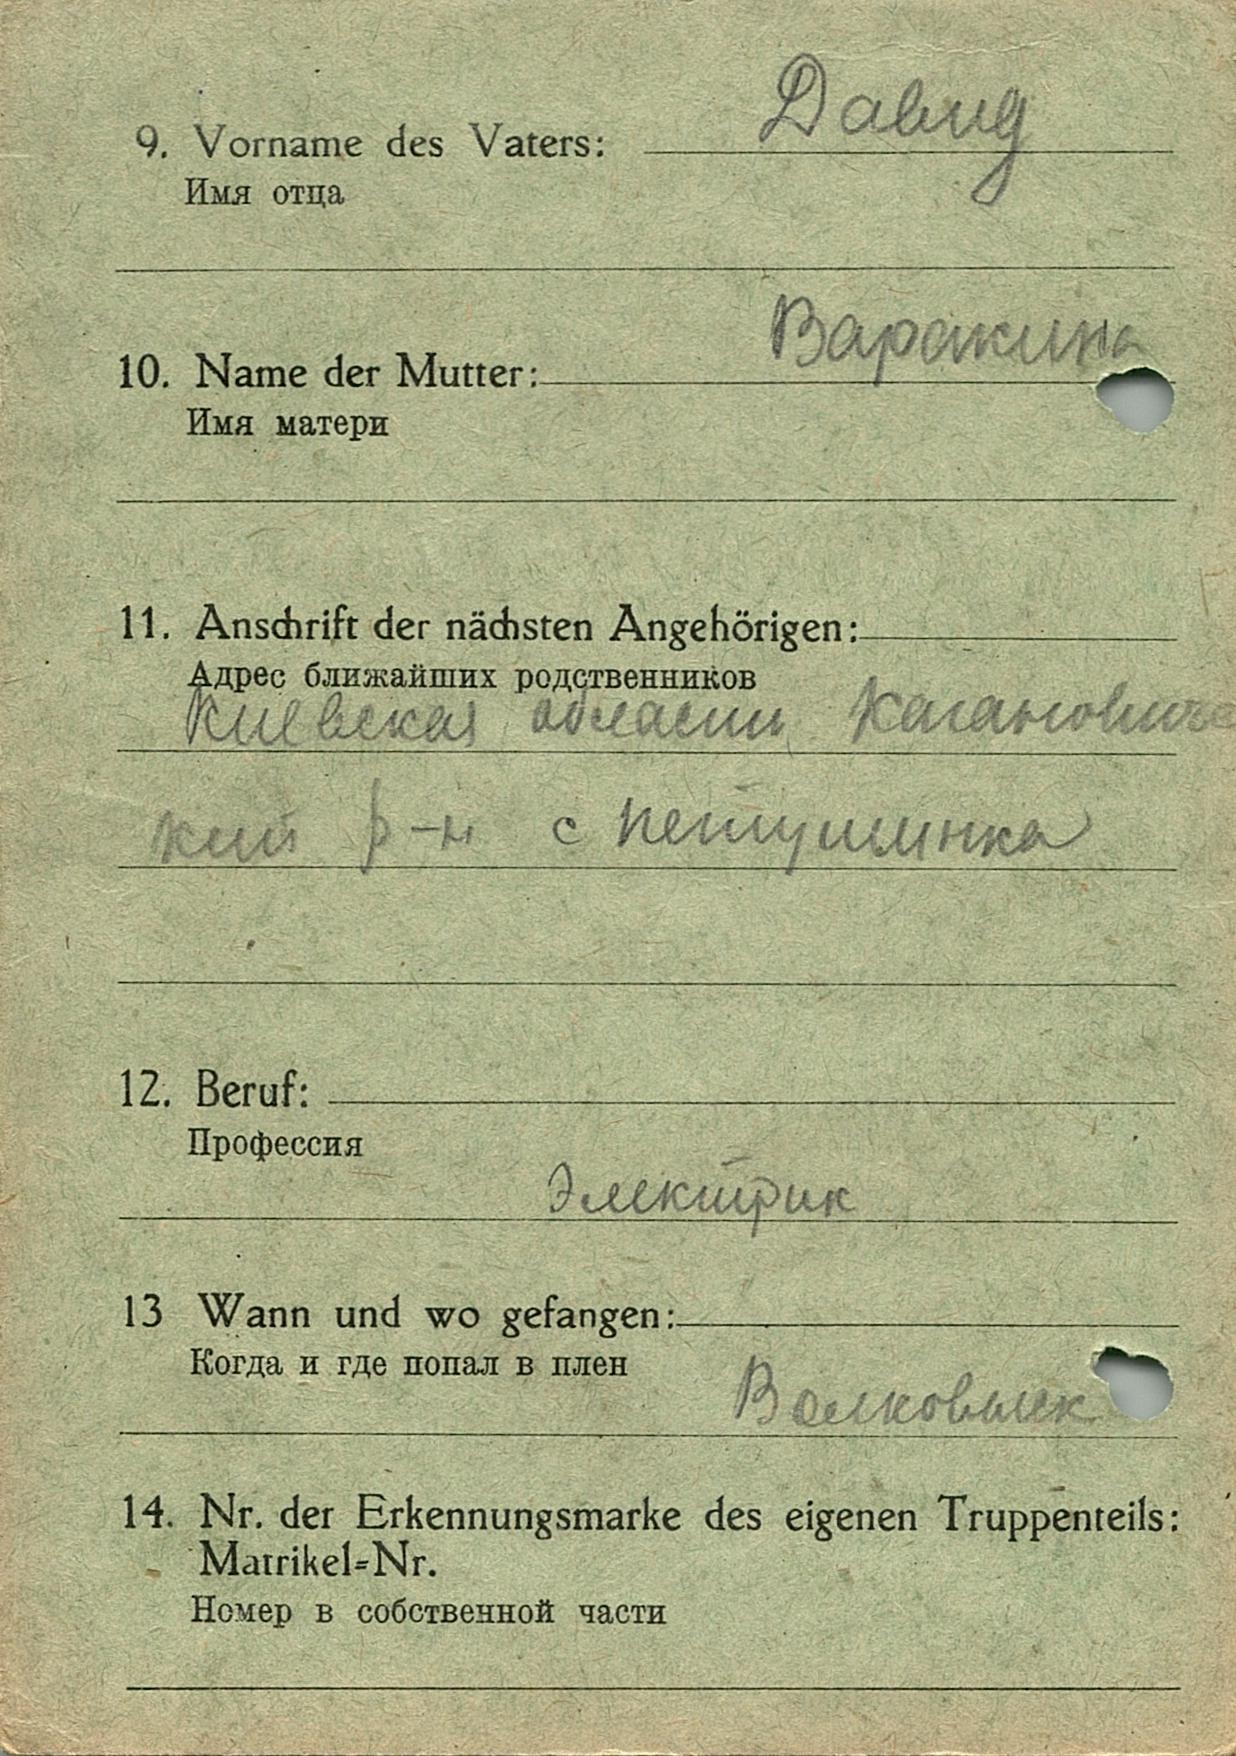 9. Vorname des Vaters: Давид
Имя отца
10. Name der Mutter: Варакина
Имя матери
11. Anschrift der nächsten Angehörigen:
Адрес ближайших родственников
Киевская области Каганович
кий р-н с
12. Beruf:
Профессия
Электрик
13 Wann und wo gefangen:
Когда и где попал в плен
Волковыск
14. Nr. der Erkennungsmarke des eigenen Truppenteils:
Matrikel=Nr.
Номер в собственной части